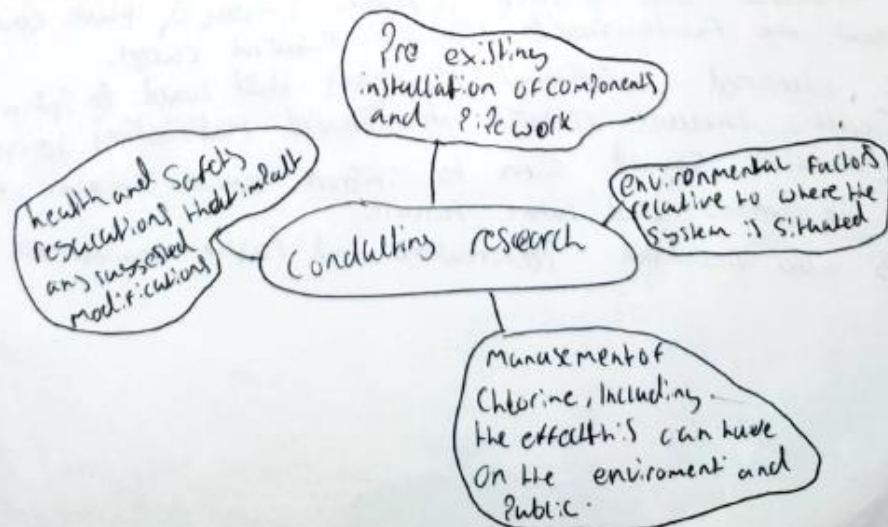 Pre existing
installation of components
and Pipework
health and Safety
regulations that impact
any suggested
modifications
environmental factors
relative to where the
system is situated
Conducting research
management of
Chlorine, Including
the effect this can have
on the enviroment and
Public.